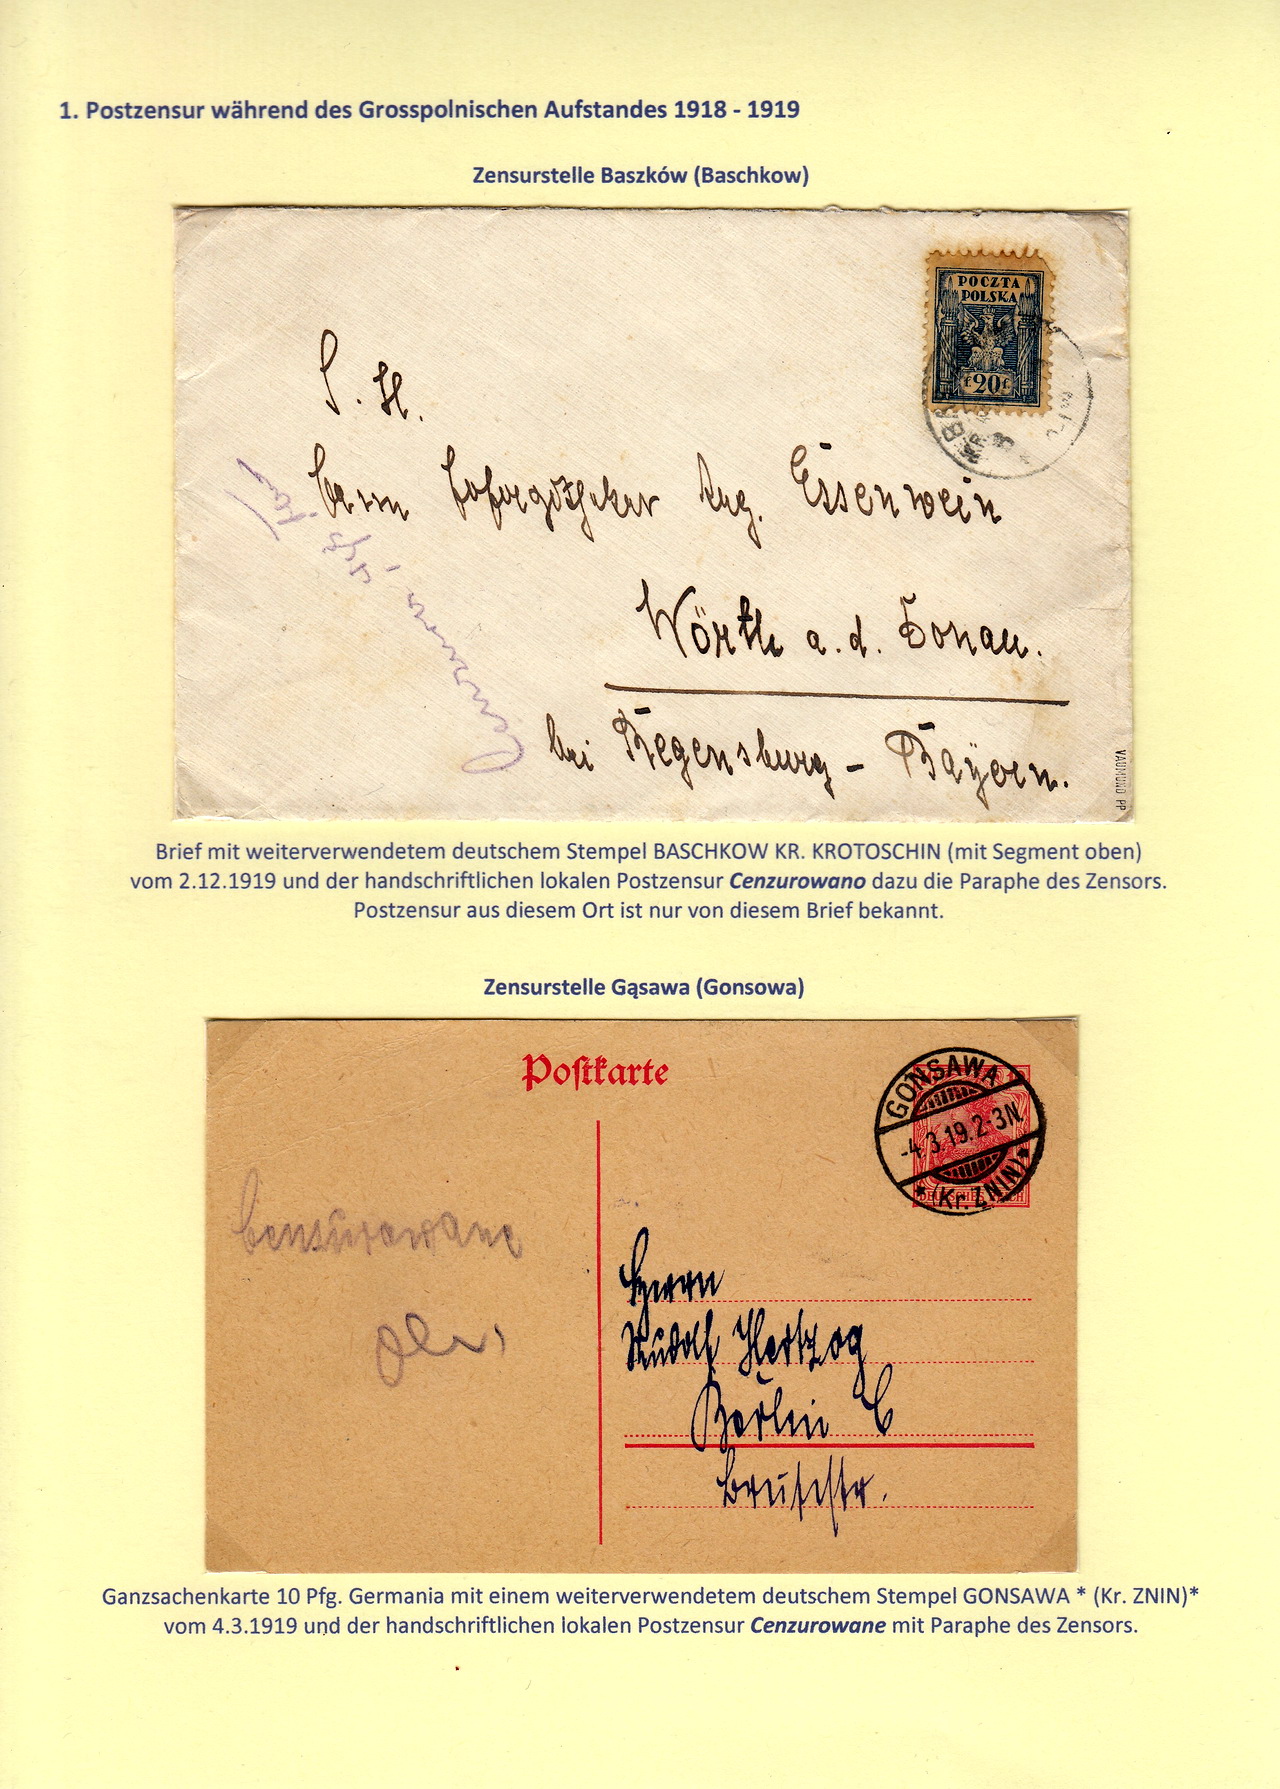 1. Postzensur während des Grosspolnischen Aufstandes 1918 - 1919
Zensurstelle Baszków (Baschkow)
POCZTA
POLSKA
f 20 f
S. H.
Herrn Aug. Essenwein
Wörth a. d. Donau.
bei Regensburg - Bayern.
VAUMUND PP
Brief mit weiterverwendetem deutschem Stempel BASCHKOW KR. KROTOSCHIN (mit Segment oben)
vom 2.12.1919 und der handschriftlichen lokalen Postzensur Cenzurowano dazu die Paraphe des Zensors.
Postzensur aus diesem Ort ist nur von diesem Brief bekannt.
Zensurstelle Gąsawa (Gonsowa)
Postkarte
GONSAWA
-4.3.19.2-3N.
* (Kr. ZNIN) *
DEUTSCHES REICH
Cenzurowane
Herrn
Rudolf Hertzog
Berlin C
Breitestr.
Ganzsachenkarte 10 Pfg. Germania mit einem weiterverwendetem deutschem Stempel GONSAWA * (Kr. ZNIN)*
vom 4.3.1919 und der handschriftlichen lokalen Postzensur Cenzurowane mit Paraphe des Zensors.